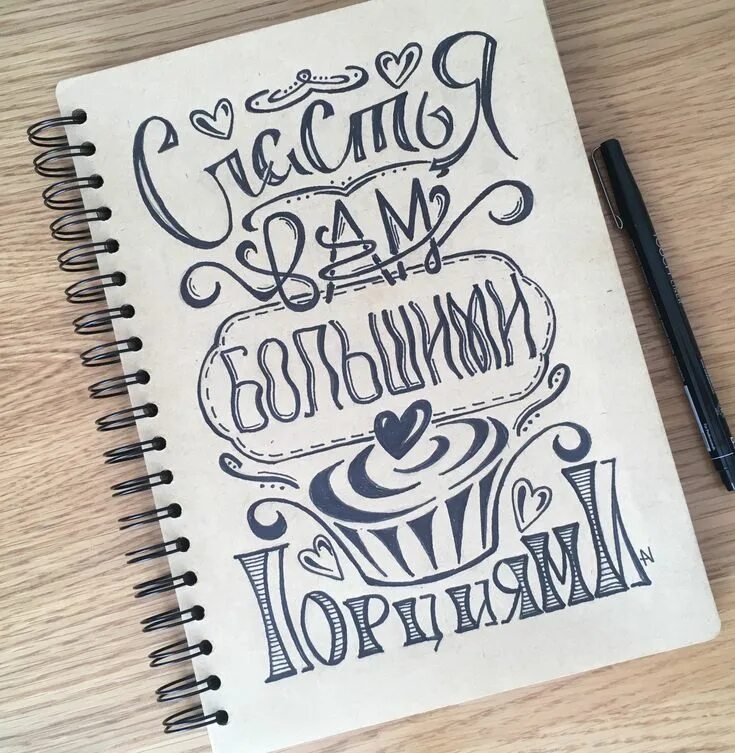 Счастья
вам
большими
порциями
AV